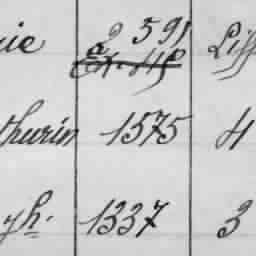 rie a 591 Liff
thurin 1575 4
yh. 1337 3